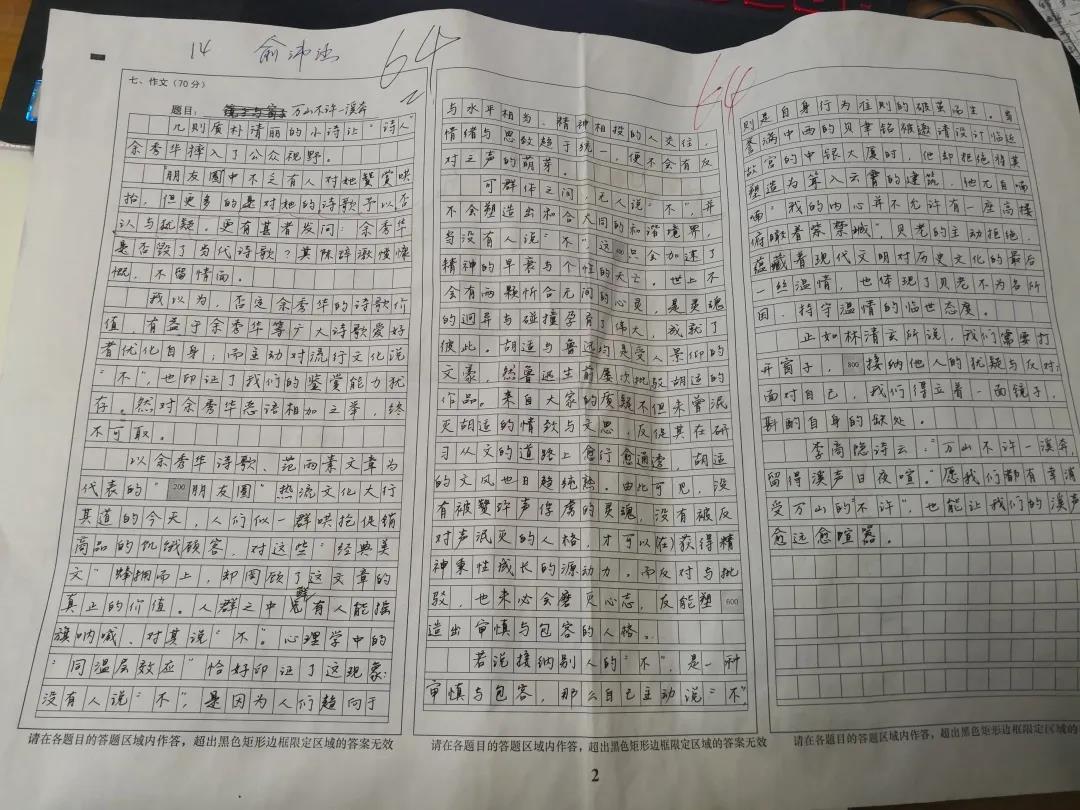 14 俞沛
64
64
七、作文(70分)
题目： 万山不许一溪奔
几则质朴清丽的小诗让“诗人”
余秀华撞入了公众视野。
朋友圈中不乏有人对她赞赏哄
抬，但更多的是对她的诗歌予以否
认与犹疑。更有甚者发问：余秀华
是否毁了当代诗歌？其陈辞激愤慷
慨，不留情面。
我以为，否定余秀华的诗歌价
值，有益于余秀华等广大诗歌爱好
者优化自身；而主动对流行文化说
“不”，也印证了我们的鉴赏能力犹
存。然对余秀华恶语相加之举，终
不可取。
以余秀华诗歌、范雨素文章为
代表的“200朋友圈”热流文化大行
其道的今天，人们似一群哄抢促销
商品的饥饿顾客，对这些“经典美
文”蜂拥而上，却罔顾了这文章的
真正的价值。人群之中鲜有人能摇
旗呐喊、对其说“不”。心理学中的
“同温层效应”恰好印证了这现象：
没有人说“不”，是因为人们趋向于
请在各题目的答题区域内作答，超出黑色矩形边框限定区域的答案无效
与水平相当、精神相投的人交往，
情绪与思致趋于统一，便不会有反
对之声的萌芽。
可群体之间，无人说“不”，并
不会塑造出和合大同的和谐境界，
当没有人说“不”，这400只会加速了
精神的早衰与个性的夭亡。世上不
会有两颗忻合无间的心灵，是灵魂
的迥异与碰撞孕育了伟大，成就了
彼此。胡适与鲁迅均是受人景仰的
文豪，然鲁迅生前屡次批驳胡适的
作品。来自大家的质疑不但未曾泯
灭胡适的情致与文思，反促其在研
习从文的道路上愈行愈通透，胡适
的文风也日趋纯熟。由此可见，没
有被赞许声俘虏的灵魂，没有被反
对声泯灭的人格，才可以在获得精
神秉性成长的源动力。而反对与批
驳，也未必会磨灭心志，反能塑600
造出审慎与包容的人格。
若说接纳别人的“不”，是一种
审慎与包容，那么自己主动说“不”
请在各题目的答题区域内作答，超出黑色矩形边框限定区域的答案无效
2
则是自身行为准则的破茧而生。当
誉满中西的贝聿铭被邀请设计临近
故宫的中银大厦时，他却拒绝将其
塑造为耸入云霄的建筑，他兀自喃
喃“我的内心并不允许有一座高楼
俯瞰着紫禁城”贝老的主动拒绝，
蕴藏着现代文明对历史文化的最后
一丝温情，也体现了贝老不为名所
困、持守温情的临世态度。
正如林清玄所说，我们需要打
开窗子，800接纳他人的犹疑与反对；
面对自己，我们得立着一面镜子，
斟酌自身的缺处。
李商隐诗云：“万山不许一溪奔，
留得溪声日夜喧”愿我们都有幸消
受万山的“不许”，也能让我们的溪声
愈远愈喧嚣。
请在各题目的答题区域内作答，超出黑色矩形边框限定区域的